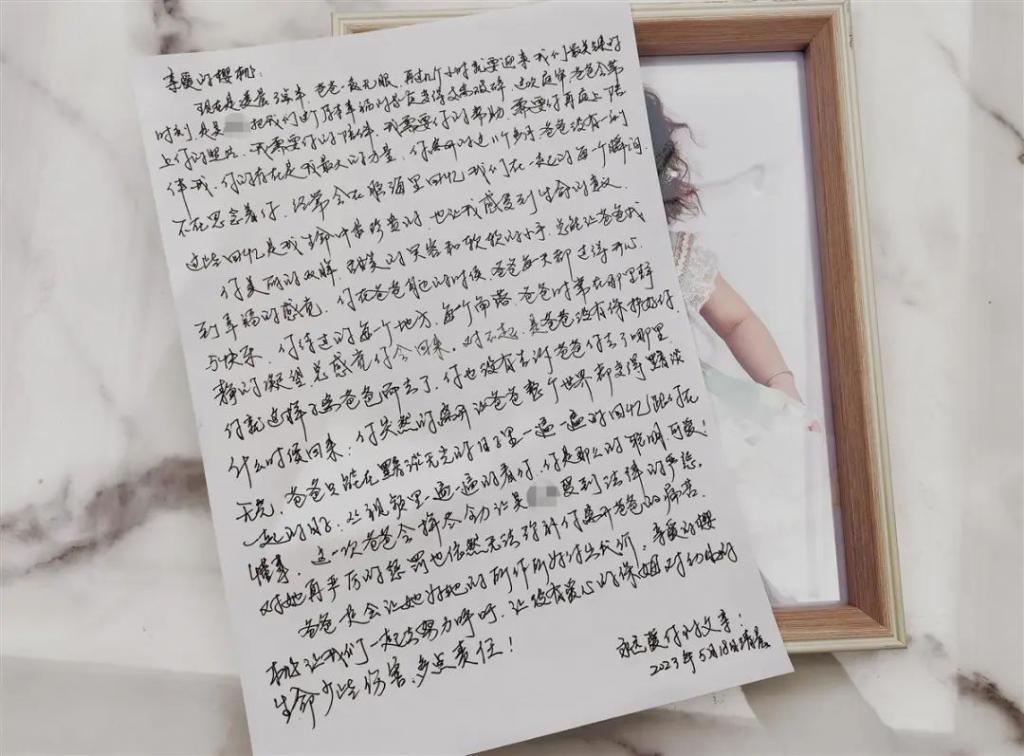 亲爱的樱桃：
现在是凌晨3点半，爸爸一夜无眠，再过几个小时就要迎来我们最关键的
时刻，是吴 把我们由原本幸福的家庭变得支离破碎，这次庭审爸爸会带
上你的照片，我需要你的陪伴，我需要你的帮助，需要你再庭上陪
伴我，你的存在是我最大的力量，你离开的这11个多月爸爸没有一刻
不在思念着你，经常会在脑海里回忆我们在一起的每一个瞬间，
这些回忆是我生命中最珍贵的，也让我感受到生命的意义。
你美丽的双眸，甜美的笑容和软软的小手，总能让爸爸找
到幸福的感觉，你在爸爸身边的时候，爸爸每天都过得开心
与快乐，你待过的每个地方，每个角落，爸爸时常在那里静
静的凝望总感觉你会回来，对不起，是爸爸没有保护好你，
你就这样了 爸爸而去了，你也没有告诉爸爸你去了哪里
什么时候回来；你突然的离开让爸爸整个世界都变得黯淡
无光，爸爸只能在黯淡无光的日子里一遍一遍的回忆跟你在
一起的日子，从视频里一遍一遍的看你，你是那么的聪明、可爱！
懂事，这一次爸爸会拼尽全力让吴 受到法律的严惩，
对她再严厉的惩罚也依然无法弥补你离开爸爸的痛苦，
爸爸是会让她为她的所作所为付出代价；亲爱的樱
桃让我们一起去努力呼吁，让没有爱心的保姆对幼小的
生命少些伤害，多点责任！
永远爱你的父亲：
2023年5月18日清晨